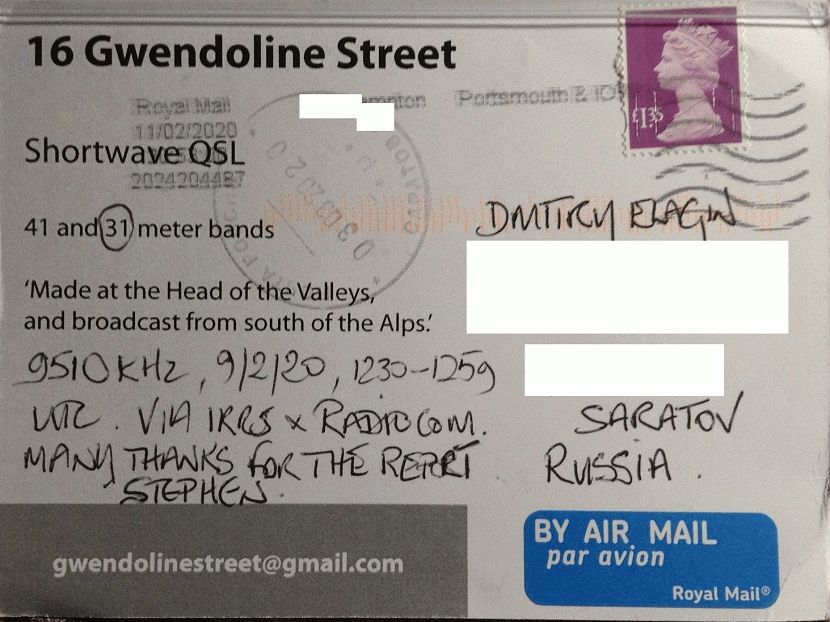 16 Gwendoline Street
Royal Mail
11/02/2020
2024204487
Portsmouth & IO
£1.35
Shortwave QSL
41 and 31 meter bands
'Made at the Head of the Valleys,
and broadcast from south of the Alps.'
9510 KHz, 9/2/20, 1230-1259
UTC. VIA IRRS x RADIOCOM.
MANY THANKS FOR THE REPORT
STEPHEN.
gwendolinestreet@gmail.com
DMITIRY ELAGIN
SARATOV
RUSSIA.
BY AIR MAIL
par avion
Royal Mail®